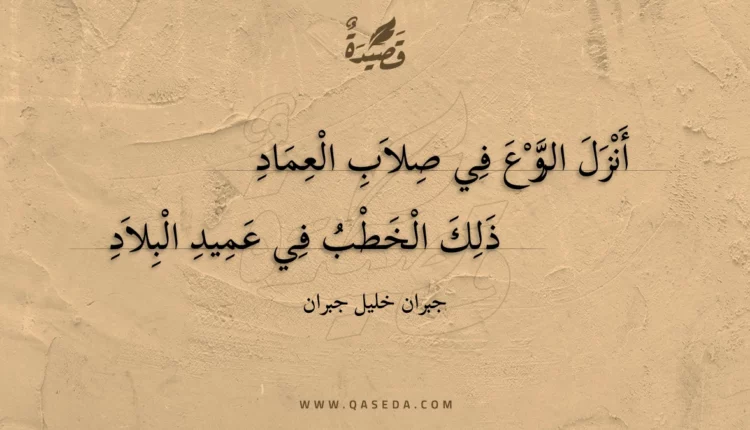 قَصِيْدَةٌ
أَنْزَلَ الرَّوْعَ فِي صِلاَبِ الْعِمَادِ
ذَلِكَ الْخَطْبُ فِي عَمِيدِ الْبِلاَدِ
جبران خليل جبران
WWW.QASEDA.COM